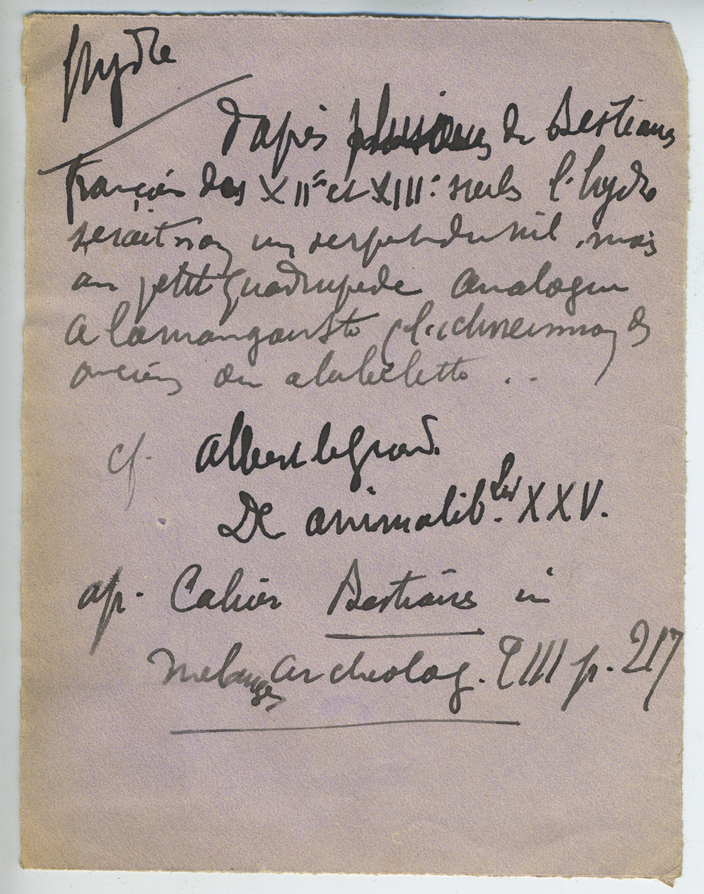 Hydre
D'après plusieurs de Bestiaires
français des XIIe et XIIIe siècles l'hydre
serait non un serpent du nil, mais
un petit quadrupède analogue
à la mangouste, l'ichneumon des
anciens ou a la belette ..
cf. Albert le Grand.
De animalib. lib XXV.
ap. Cahier Bestiaires in
Mélanges Archéolog. T III p. 217